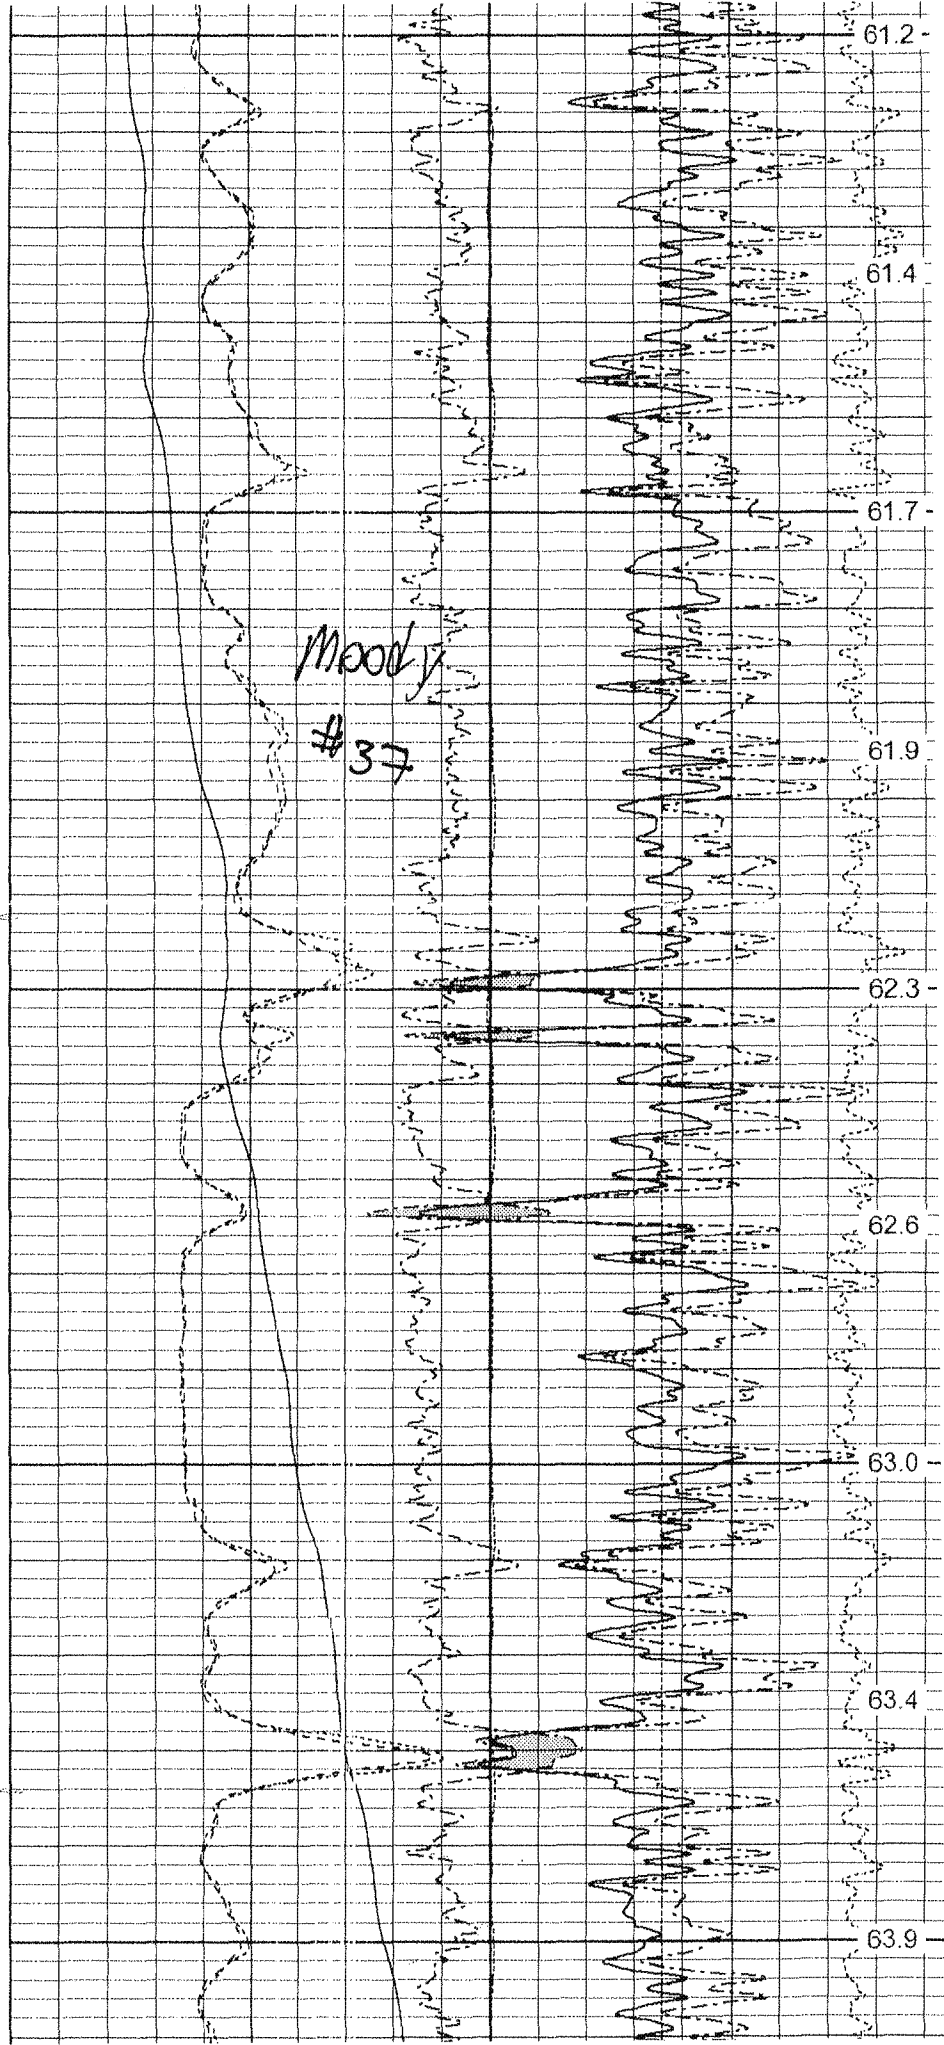 61.2
61.4
61.7
Moody
#37
61.9
62.3
62.6
63.0
63.4
63.9